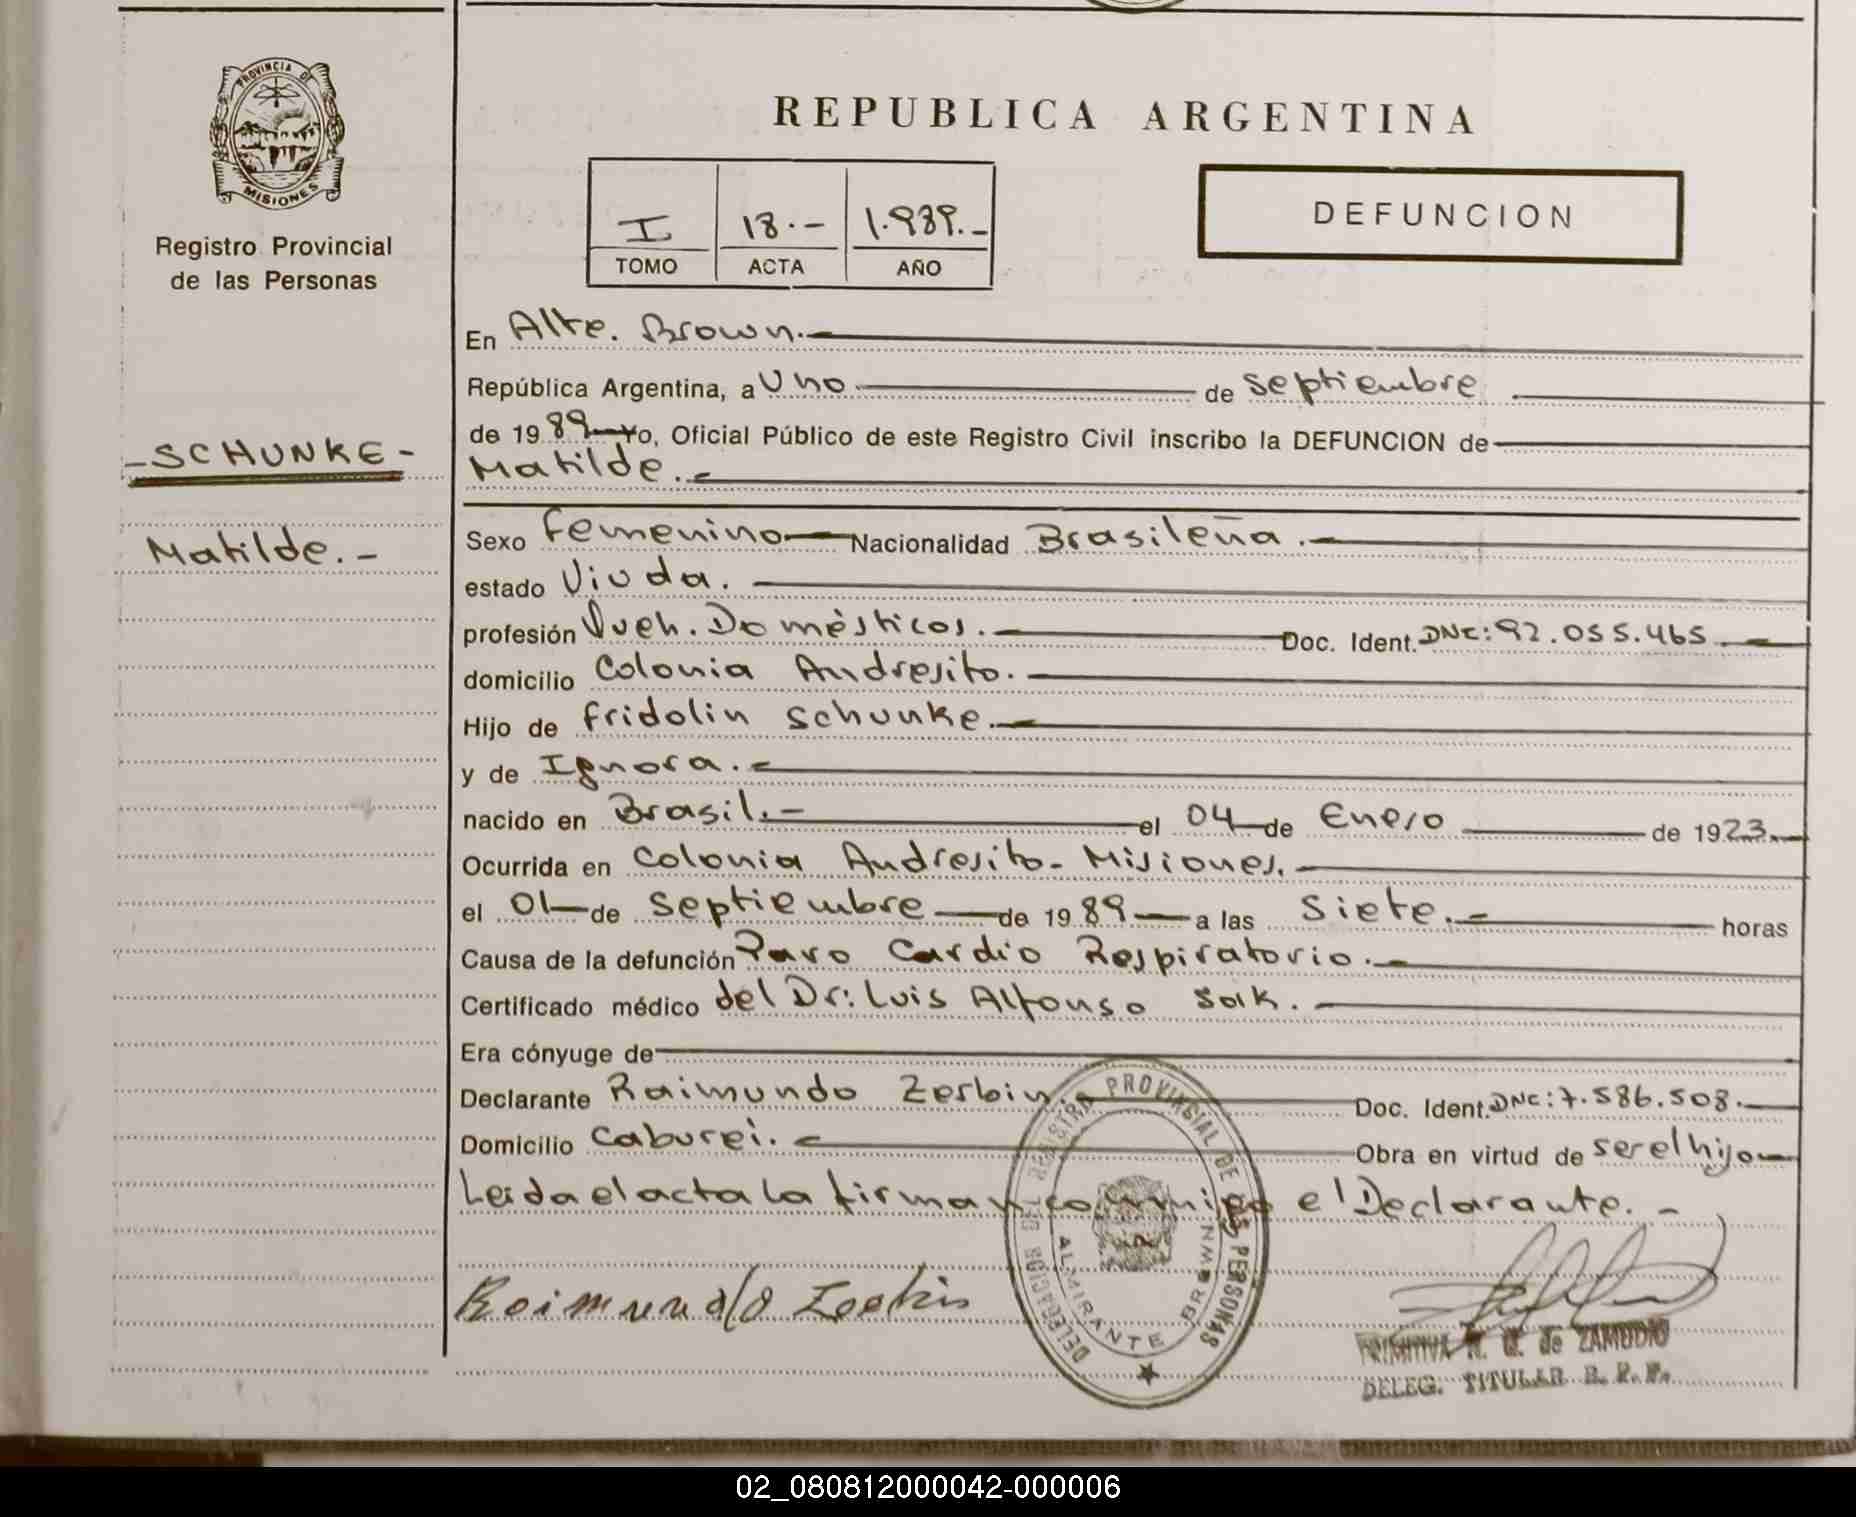 PROVINCIA DE
MISIONES
Registro Provincial
de las Personas
-SCHUNKE-
Matilde.-
REPUBLICA ARGENTINA
I 18.- 1.989.-
TOMO ACTA AÑO
DEFUNCION
En Alte. Brown.
República Argentina, a Uno de septiembre
de 1989 yo, Oficial Público de este Registro Civil inscribo la DEFUNCION de
Matilde.
Sexo femenino Nacionalidad Brasileña.
estado Viuda.
profesión Queh. Domésticos. Doc. Ident. DNC: 92.055.465
domicilio Colonia Andresito.
Hijo de fridolin schunke.
y de Ignora.
nacido en Brasil.- el 04 de Enero de 1923.
Ocurrida en Colonia Andresito- Misiones.
el 01 de septiembre de 1989 a las siete.- horas
Causa de la defunción Paro Cardio Respiratorio.
Certificado médico del Dr: Luis Alfonso
Era cónyuge de
Declarante Raimundo Zerbin. Doc. Ident. DNC: 7.586.508.
Domicilio Caburei. Obra en virtud de ser el hijo
Leida el acta la firman conmigo el Declarante.-
Raimundo
DELEGACION DEL REGISTRO PROVINCIAL DE LAS PERSONAS
ALMIRANTE BROWN
de ZAMUDIO
DELEG. TITULAR R. P. P.
02_080812000042-000006